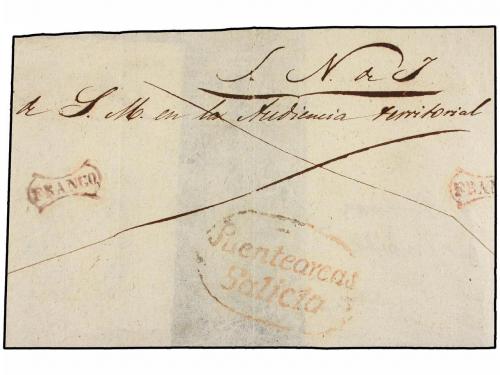 S. N de J
de S. M. en la Audiencia territorial
FRANCO
FRAN
Puenteareas
Galicia